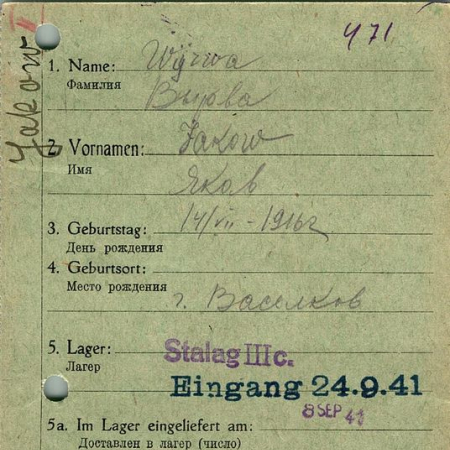 Jakow
У 71
1. Name: Wyrwa
Фамилия
Вырва
2. Vornamen: Jakow
Имя
Яков
3. Geburtstag: 14/VII - 1916г
День рождения
4. Geburtsort:
Место рождения
г. Васелков
5. Lager: Stalag III c.
Лагер
Eingang 24.9.41
8 SEP 41
5a. Im Lager eingeliefert am:
Доставлен в лагер (число)